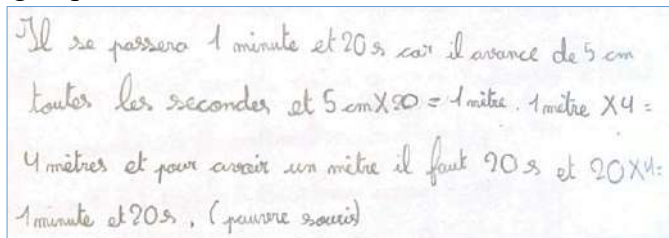 Il se passera 1 minute et 20 s car il avance de 5 cm
toutes les secondes et 5 cm X 20 = 1 mètre. 1 mètre X 4 =
4 mètres et pour avoir un mètre il faut 20 s et 20 X 4 =
1 minute et 20 s, (pauvre souris)